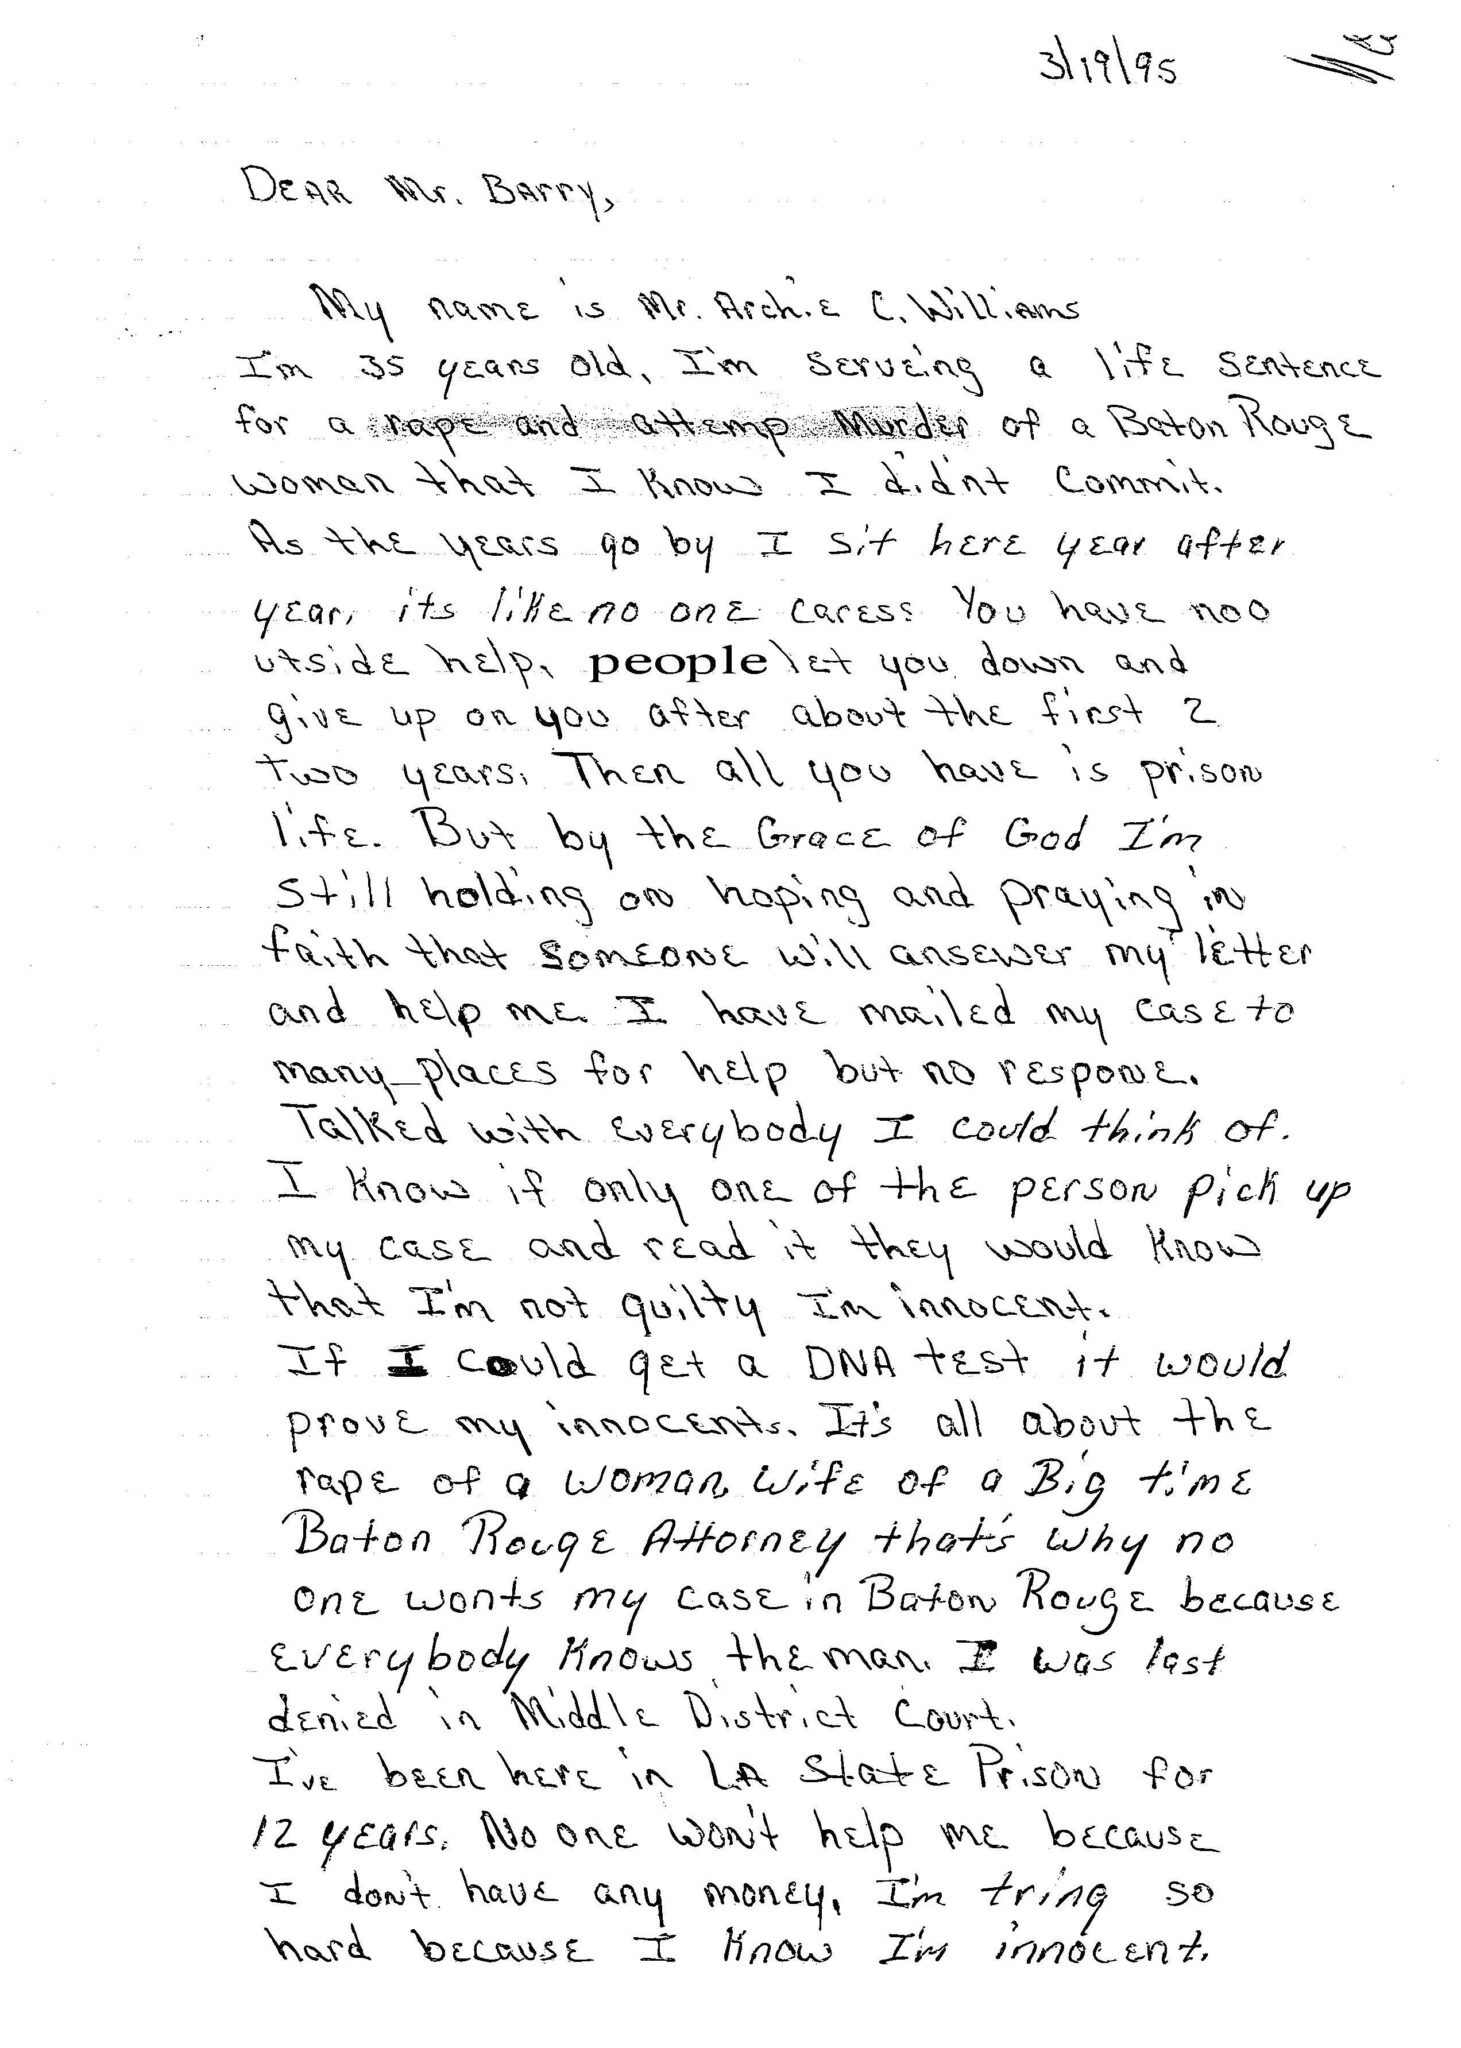 3/19/95
DEAR Mr. BArry,
My name is Mr. Archie C. Williams
I'm 35 years old, I'm serveing a life sentence
for a rape and attemp Murder of a Baton Rouge
woman that I know I didn't commit.
As the years go by I sit here year after
year, its like no one caress You have noo
utside help, people let you down and
give up on you after about the first 2
two years. Then all you have is prison
life. But by the Grace of God I'm
still holding on hoping and praying in
faith that someone will ansewer my letter
and help me. I have mailed my case to
many places for help but no respone.
Talked with everybody I could think of.
I know if only one of the person pick up
my case and read it they would know
that I'm not guilty I'm innocent.
If I could get a DNA test it would
prove my innocents. It's all about the
rape of a woman, wife of a Big time
Baton Rouge Attorney that's why no
one wonts my case in Baton Rouge because
everybody knows the man. I was last
denied in Middle District Court.
I've been here in LA State Prison for
12 years. No one won't help me because
I don't have any money, I'm tring so
hard because I know I'm innocent.